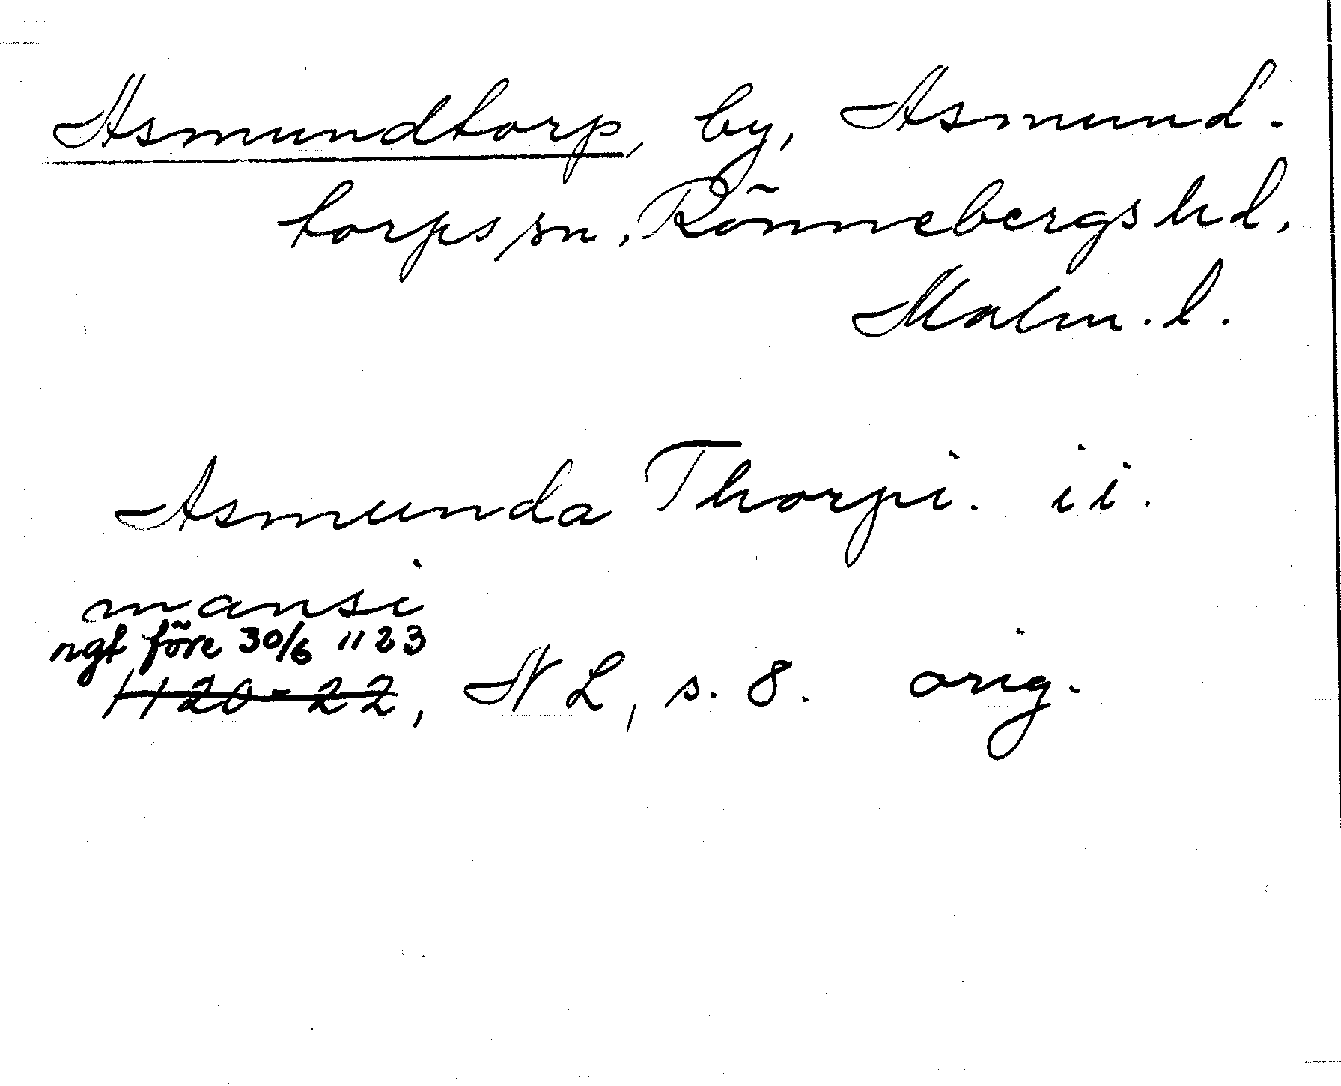 Asmundtorp, by, Asmund-
torps sn, Rönnebergs hd,
Malm. l.
Asmunda Thorpi. ii.
mansi
ngt före 30/6 1123
1120-22, NL, s. 8. orig.